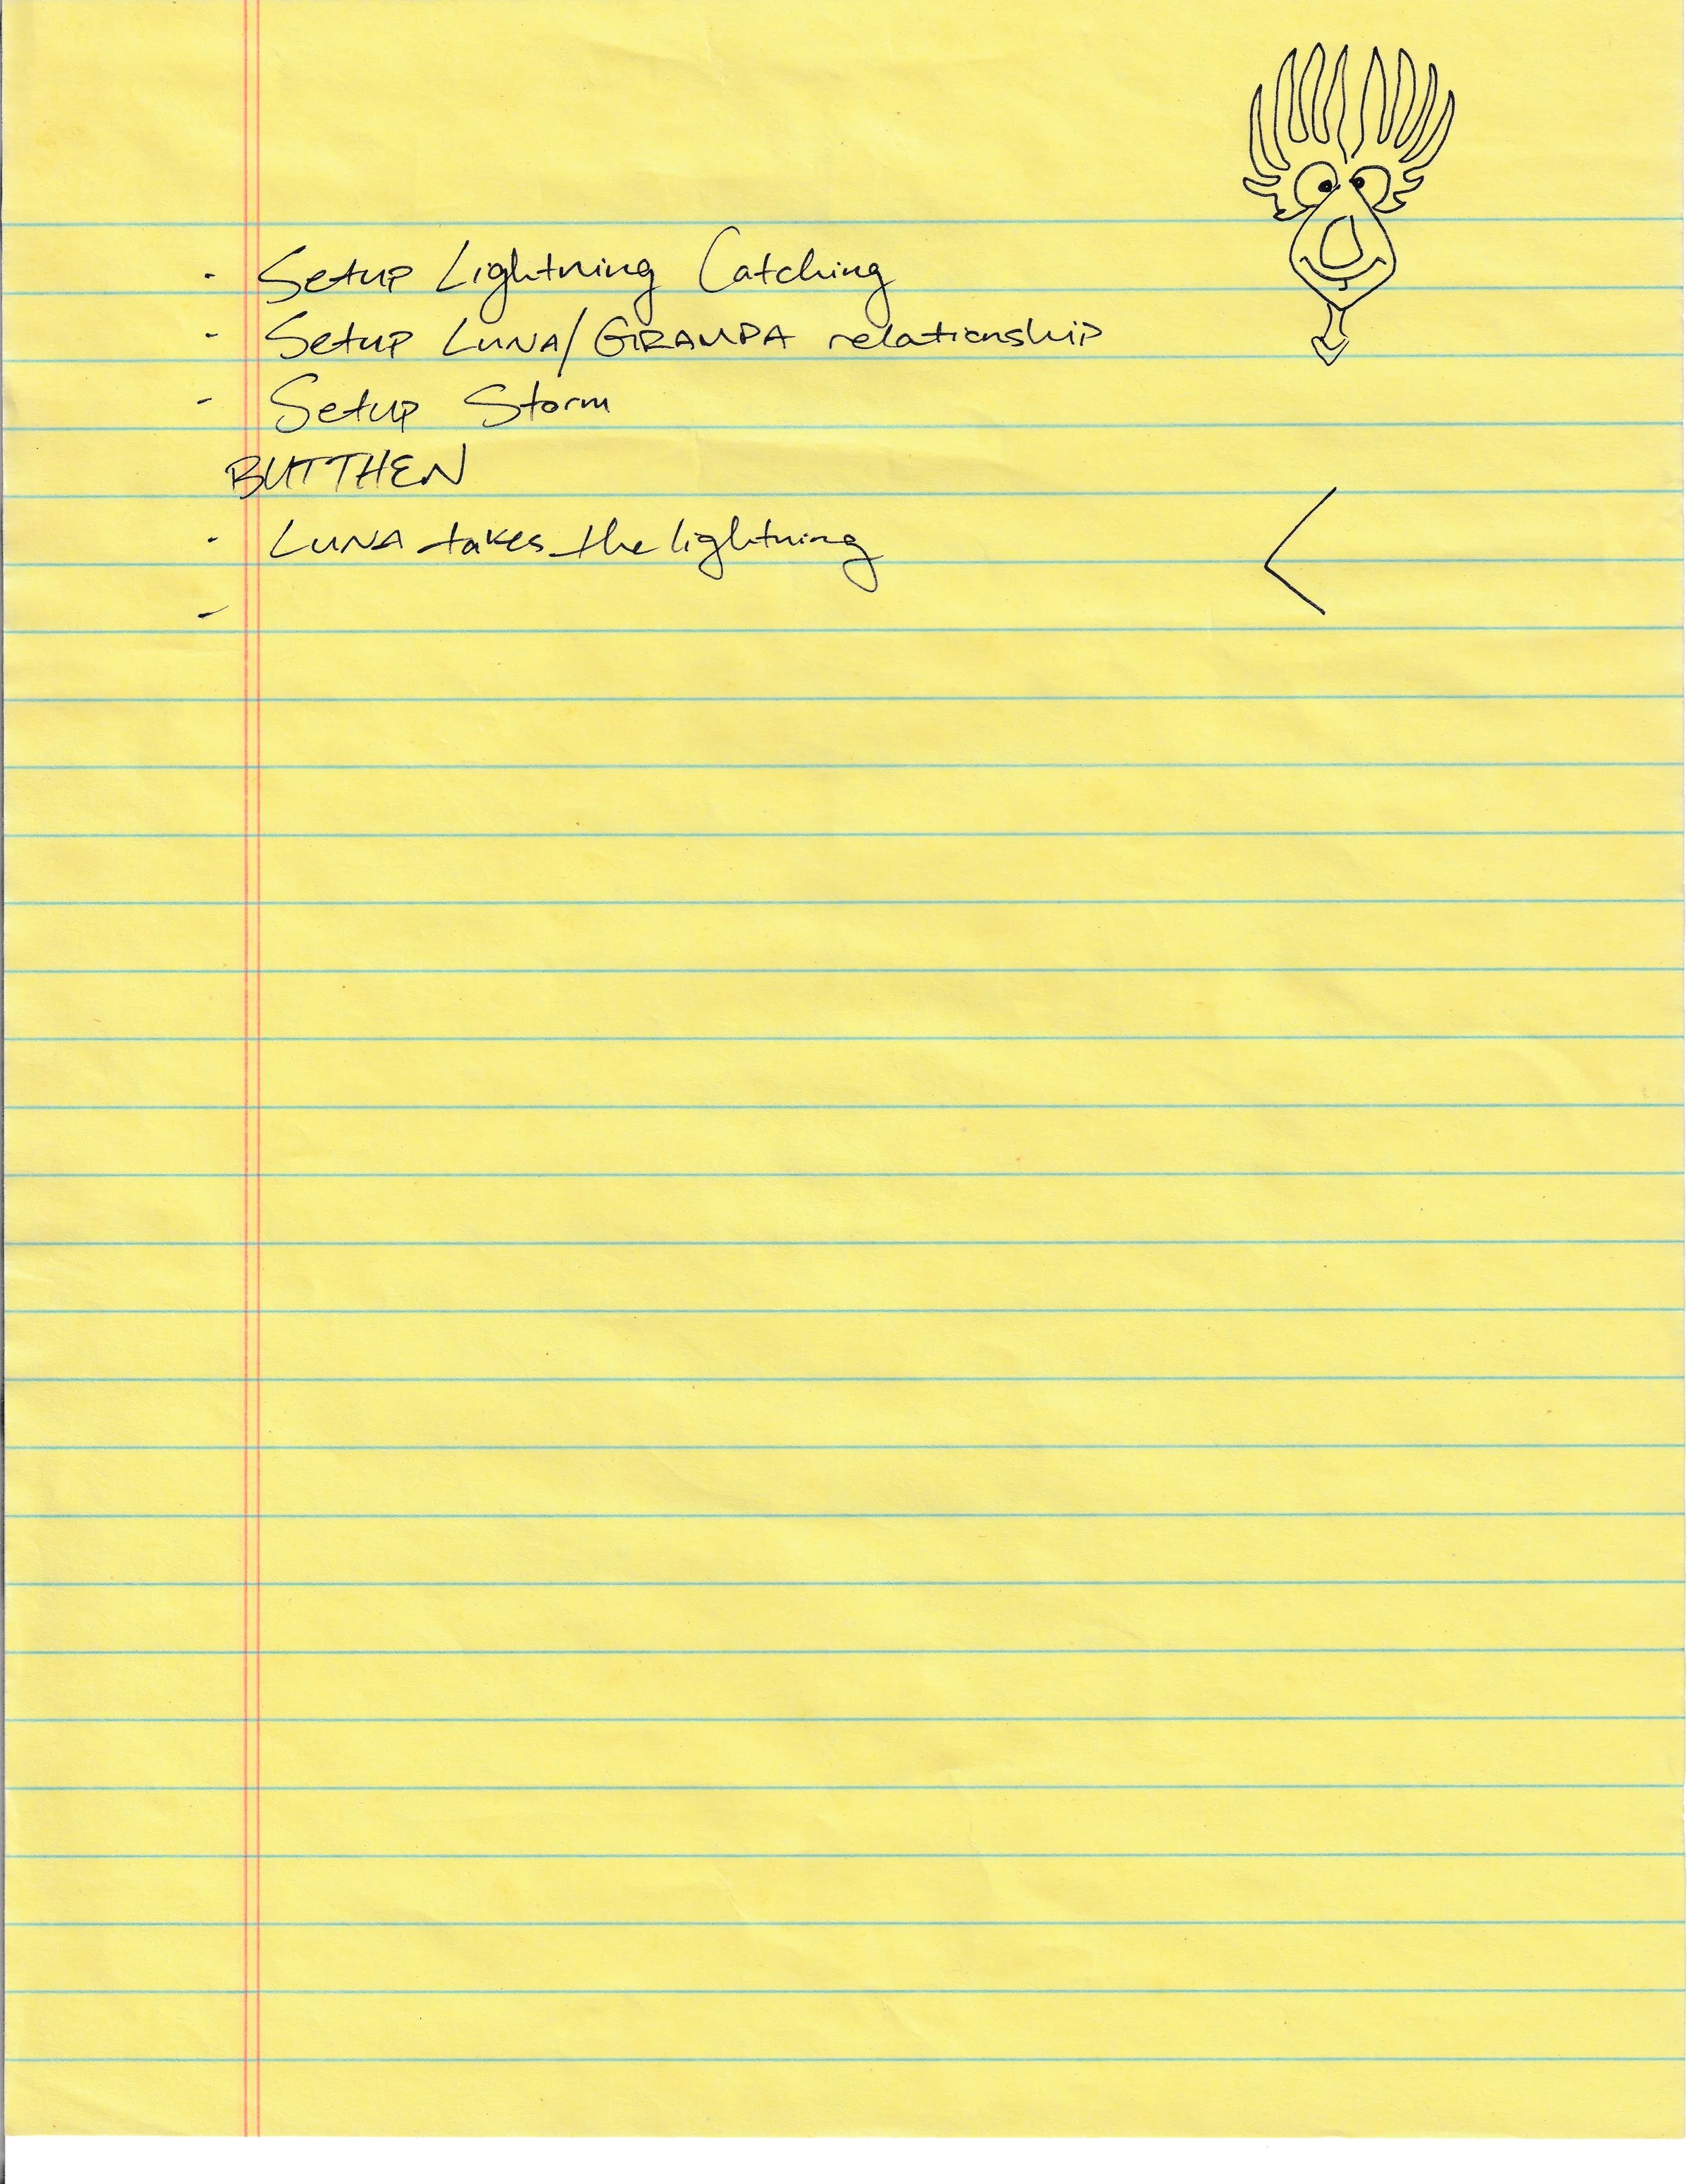 - Setup Lightning Catching
- Setup LUNA/GRAMPA relationship
- Setup Storm
BUT THEN
- LUNA takes the lightning
-